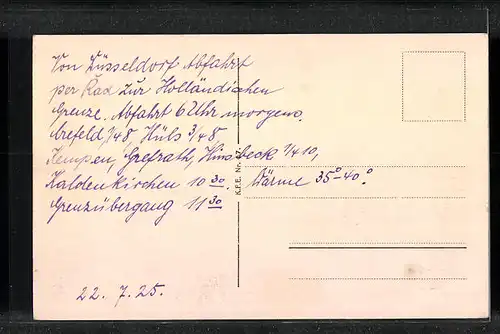 Von Düsseldorf Abfahrt
per Rad zur Holländichen
Grenze. Abfahrt 6 Uhr morgens.
Crefeld 1/48 Hüls 3/48.
Kempen, Grefrath, Hinsbeck 1/410,
Kaldenkirchen 10 30. Wärme 35°-40°.
Grenzübergang 11 30
22. 7. 25.
K.F.E. Nr. 47